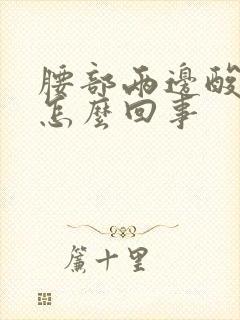 腰部兩邊酸
怎麼回事
簾十里